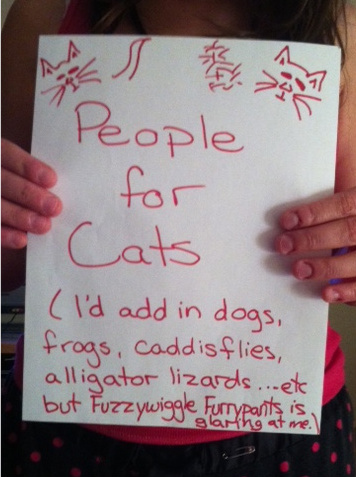 People
for
Cats
( I'd add in dogs,
frogs, caddisflies,
alligator lizards...etc
but Fuzzywiggle Furrypants is
glaring at me.)